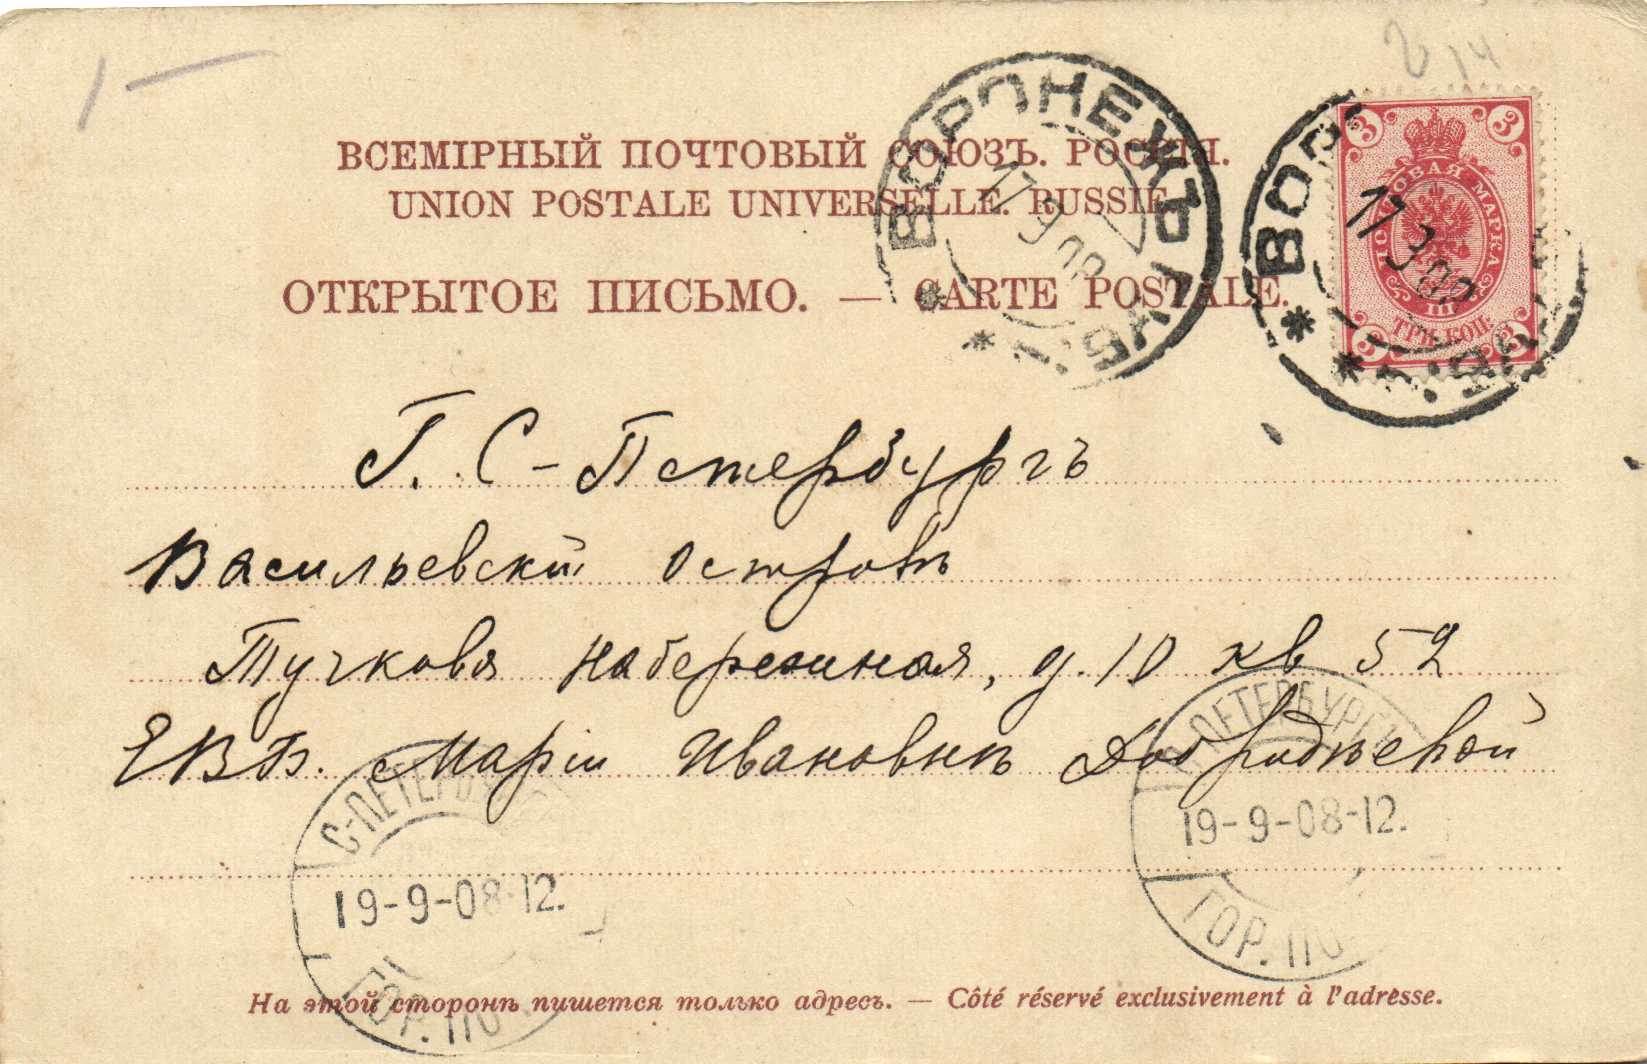 ВСЕМІРНЫЙ ПОЧТОВЫЙ СОЮЗЪ. РОССІЯ.
UNION POSTALE UNIVERSELLE. RUSSIE.
ОТКРЫТОЕ ПИСЬМО. — CARTE POSTALE.
ВОРОНЕЖЪ ГУБ.
17 9 08
3 3
ПОЧТОВАЯ МАРКА
ТРИ КОП.
3 3
17 9 08
Г. С-Петербургъ
Васильевскій островъ
Тучкова набережная, д. 10 кв 52
ЕВБ. Маріи Ивановнѣ
С-ПЕТЕРБУРГЪ
19-9-08-12.
ГОР. ПО
С-ПЕТЕРБУРГЪ
19-9-08-12.
ГОР. ПО
На этой сторонѣ пишется только адресъ. — Côté réservé exclusivement à l'adresse.